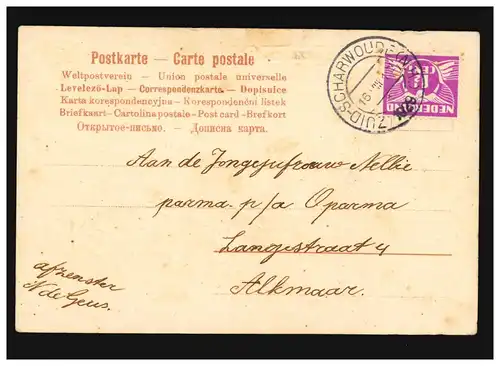 Postkarte — Carte postale
Weltpostverein — Union postale universelle
Levelező-Lap — Correspondenzkarte. — Dopisnice
Karta korespondencyjna — Korespondenční lístek
Briefkaart — Cartolina postale — Post card — Brefkort
Открытое-письмо. — Дописна карта.
ZUID-SCHARWOUDE
16
NEDERLAND
Aan de Jongejufrouw Nellie
parma p/a Oparma
Langestraat 4
Alkmaar.
afzenster
N de Geus.